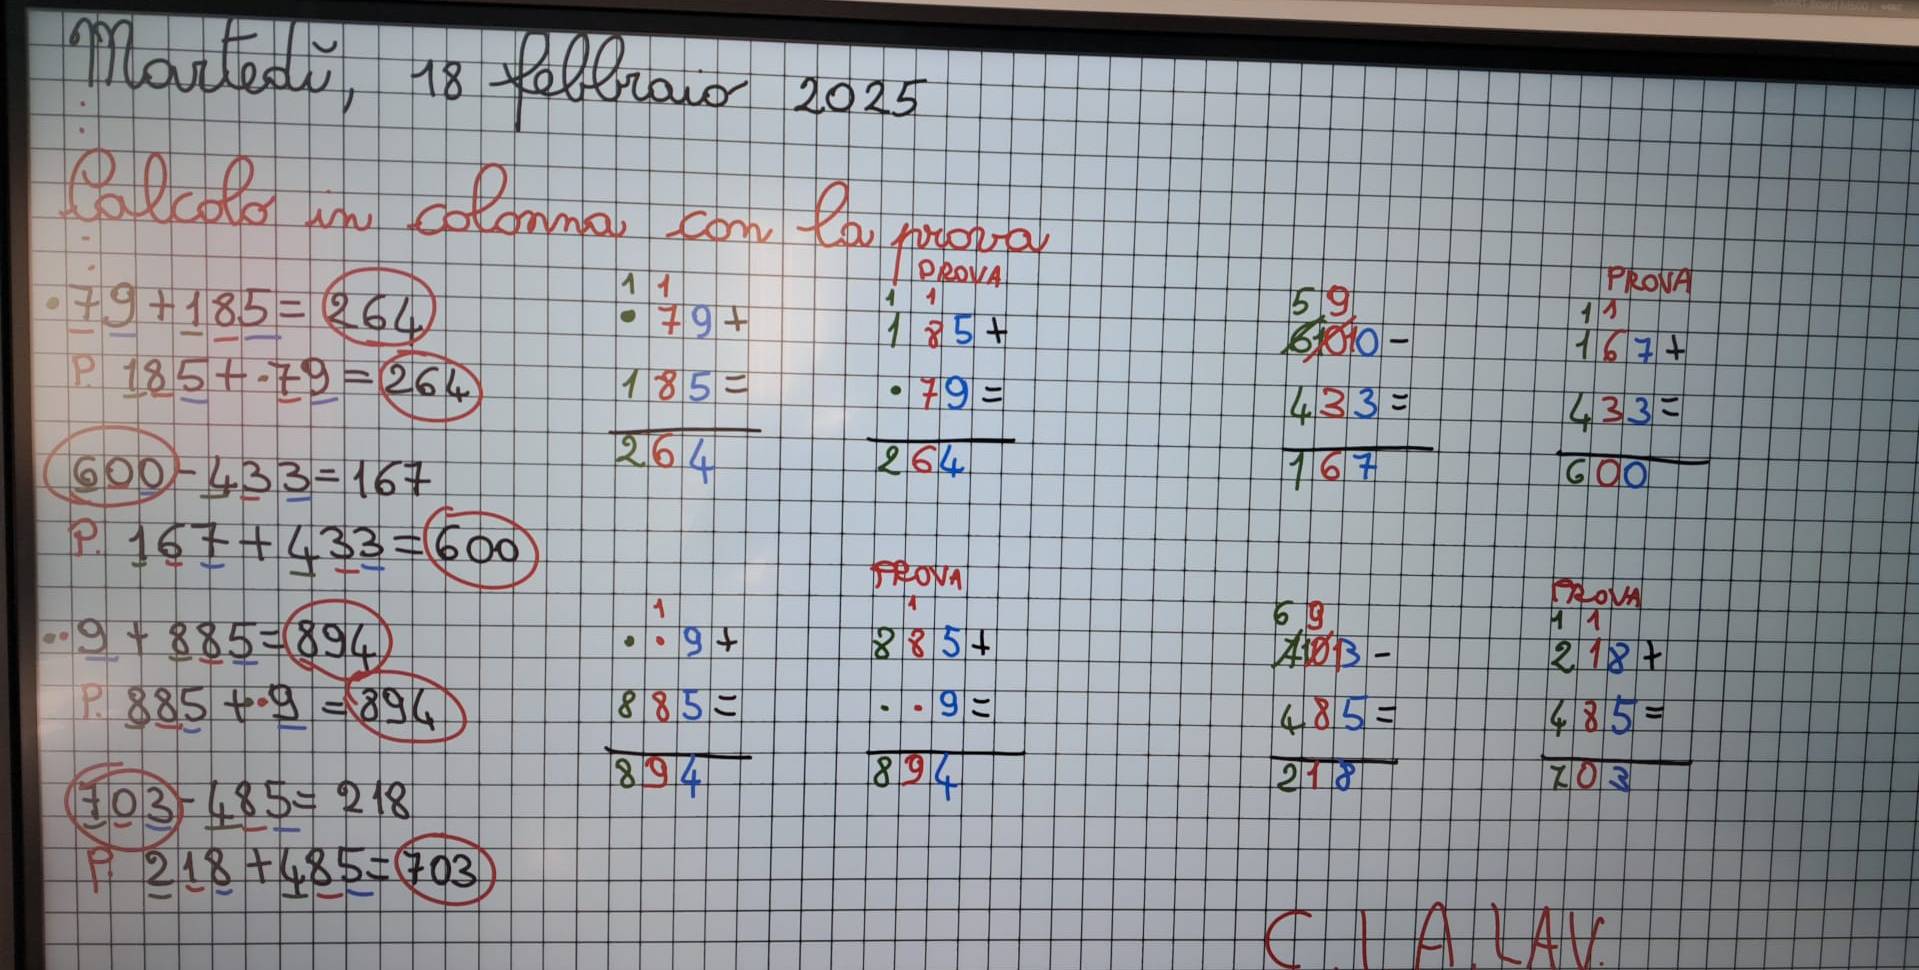 Martedì, 18 febbraio 2025
Calcolo in colonna con la prova
·79+185=264
P. 185+·79=264
600-433=167
P. 167+433=600
··9+885=894
P. 885+··9=894
703-485=218
P. 218+485=703
1 1
·79+
185=
264
PROVA
1 1
185+
·79=
264
5 9
61010-
433=
167
PROVA
1 1
167+
433=
600
1
··9+
885=
894
PROVA
1
885+
··9=
894
6 9
71013-
485=
218
PROVA
1 1
218+
485=
703
C. I A. LAV.